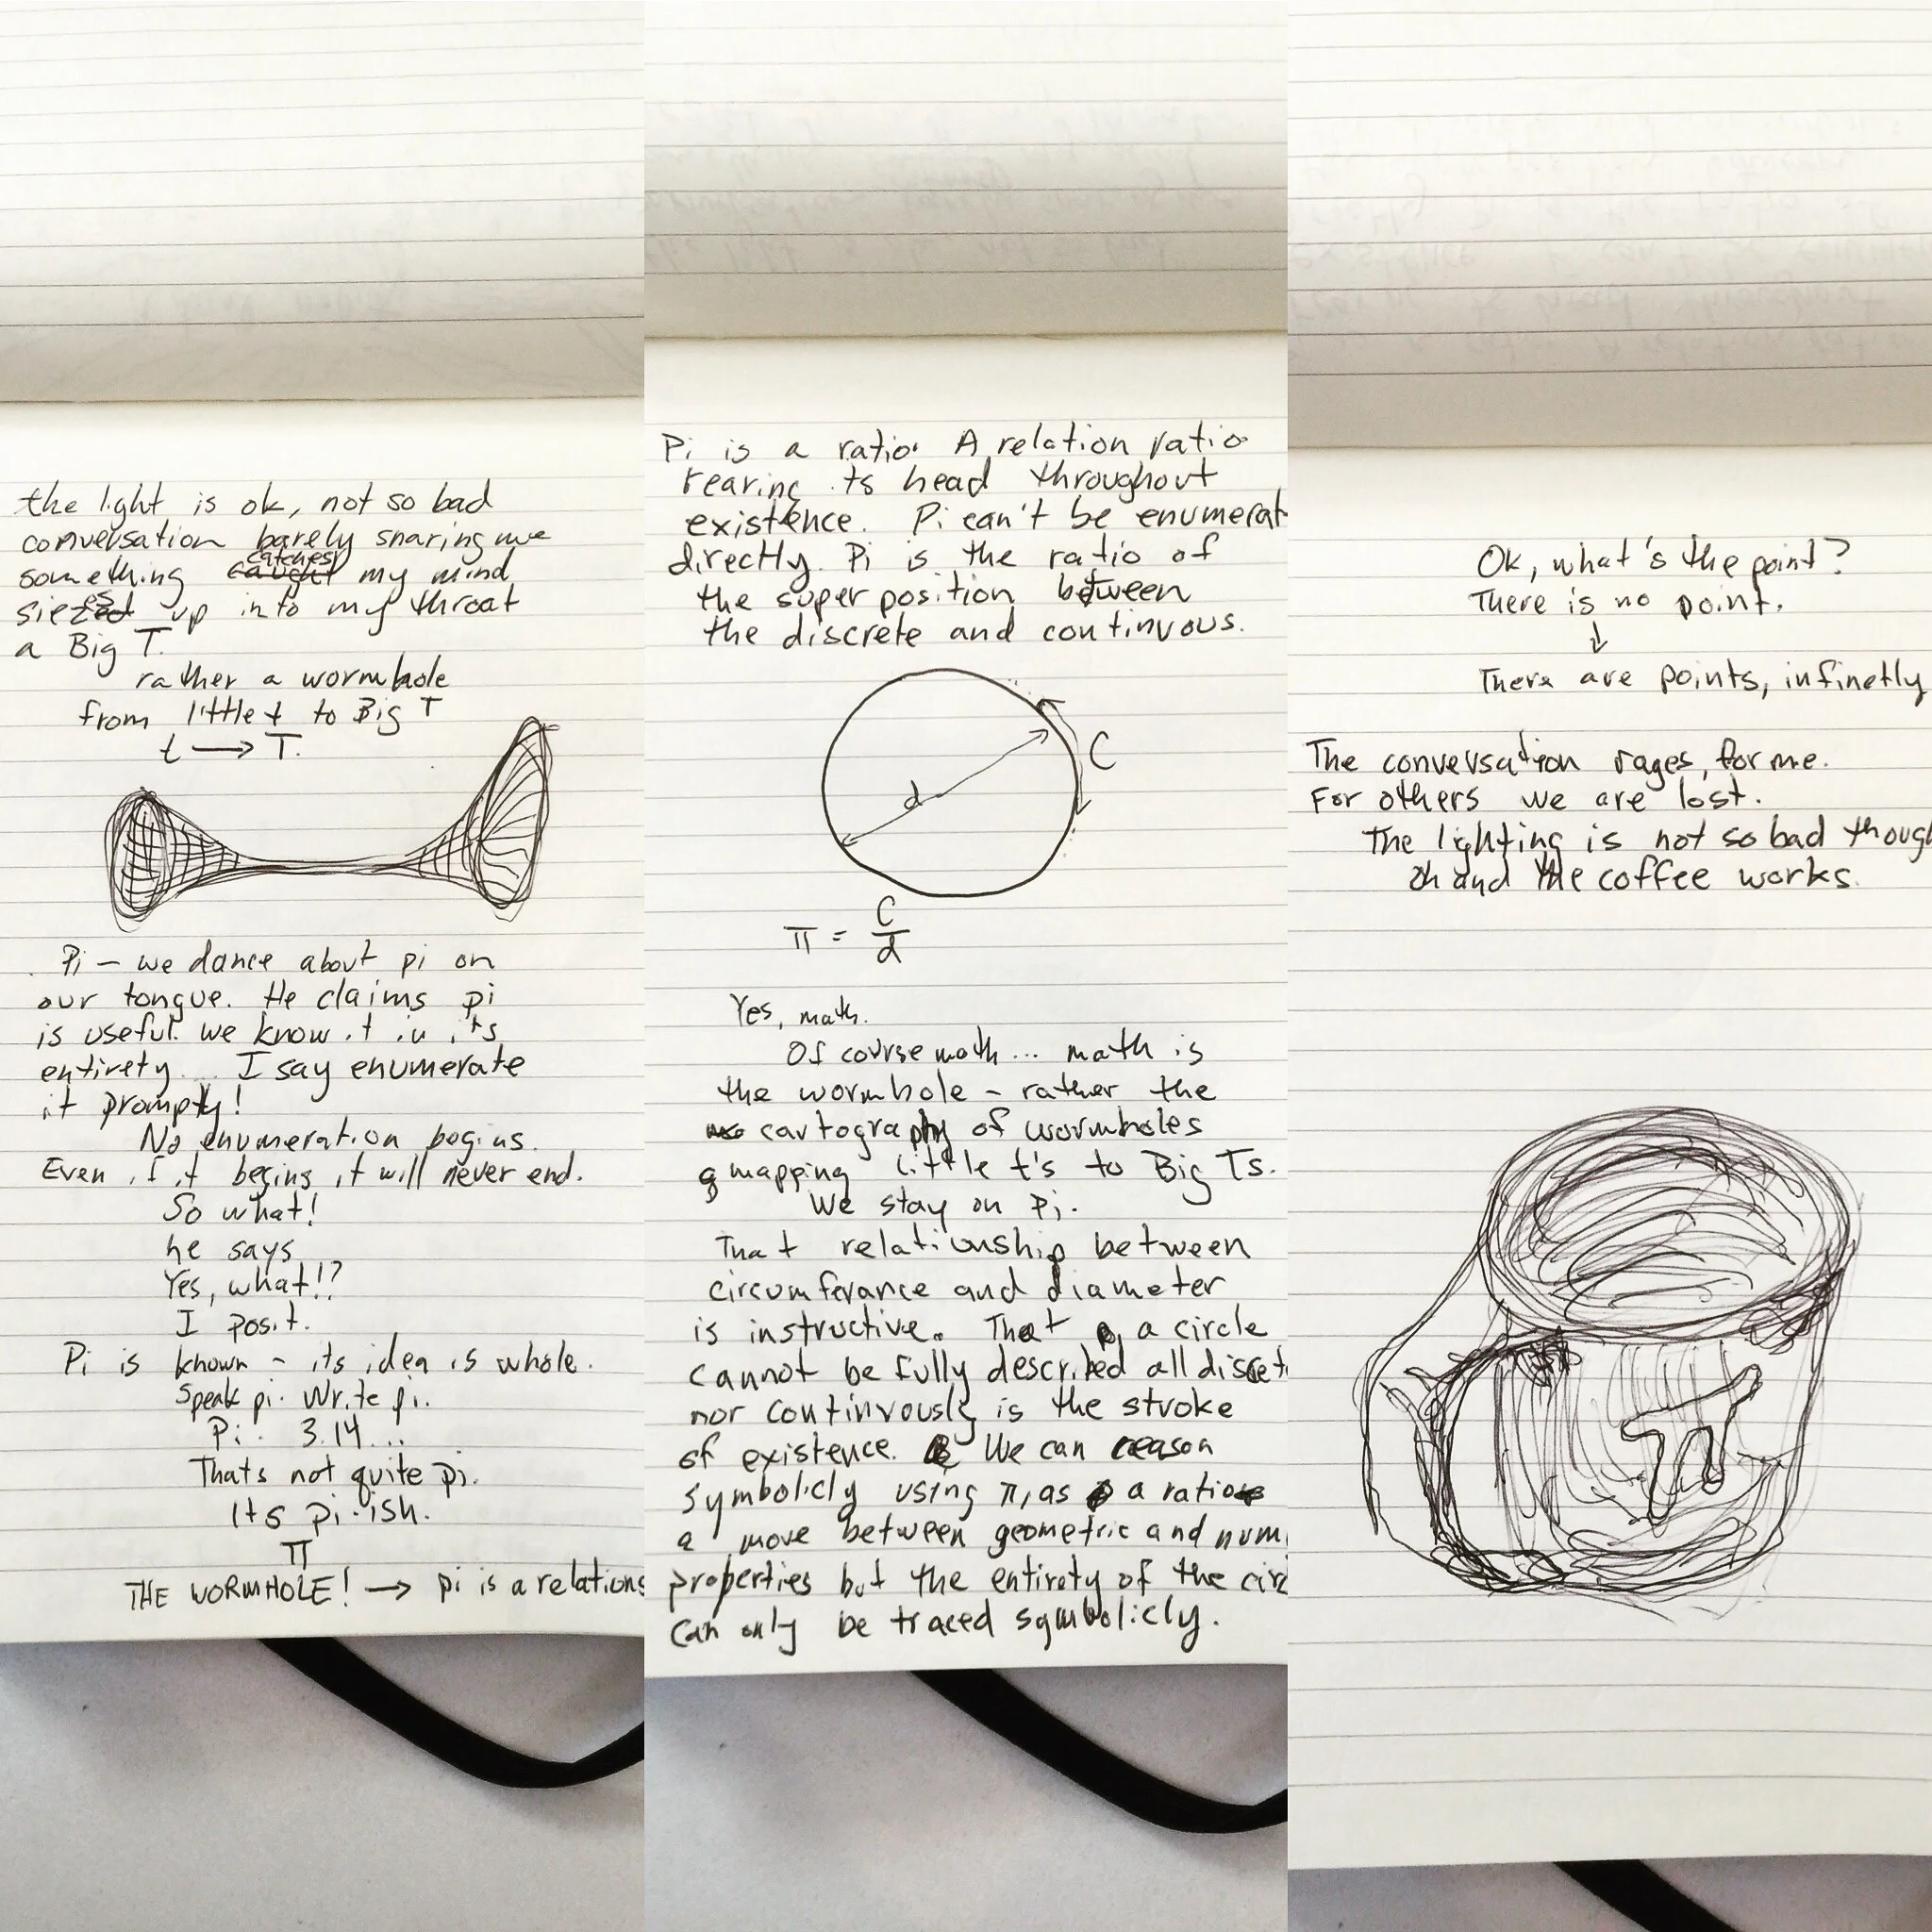 the light is ok, not so bad
conversation barely snaring me
something catches my mind
siezes up into my throat
a Big T.
rather a wormhole
from little t to Big T
t → T.
Pi – we dance about pi on
our tongue. He claims pi
is useful. we know it in its
entirety... I say enumerate
it promptly!
No enumeration begins.
Even if it begins it will never end.
So what!
he says
Yes, what!?
I posit.
Pi is known – its idea is whole.
Speak pi. Write pi.
Pi. 3.14...
Thats not quite pi.
Its pi-ish.
π
THE WORMHOLE! → pi is a relations
Pi is a ratio. A relation ratio
rearing its head throughout
existence. Pi can't be enumerat
directly. Pi is the ratio of
the super position between
the discrete and continuous.
C
d
π = C/d
Yes, math.
Of course math... math is
the wormhole – rather the
cartography of wormholes
mapping little t's to Big Ts.
We stay on Pi.
That relationship between
circumferance and diameter
is instructive. That a circle
cannot be fully described all discet
nor continuously is the stroke
of existence. We can reason
symbolicly using π, as a ratio
a move between geometric and num
properties but the entirety of the circ
can only be traced symbolicly.
Ok, what's the point?
There is no point.
↓
There are points, infinetly
The conversation rages, for me.
For others we are lost.
The lighting is not so bad though
oh and the coffee works.
π